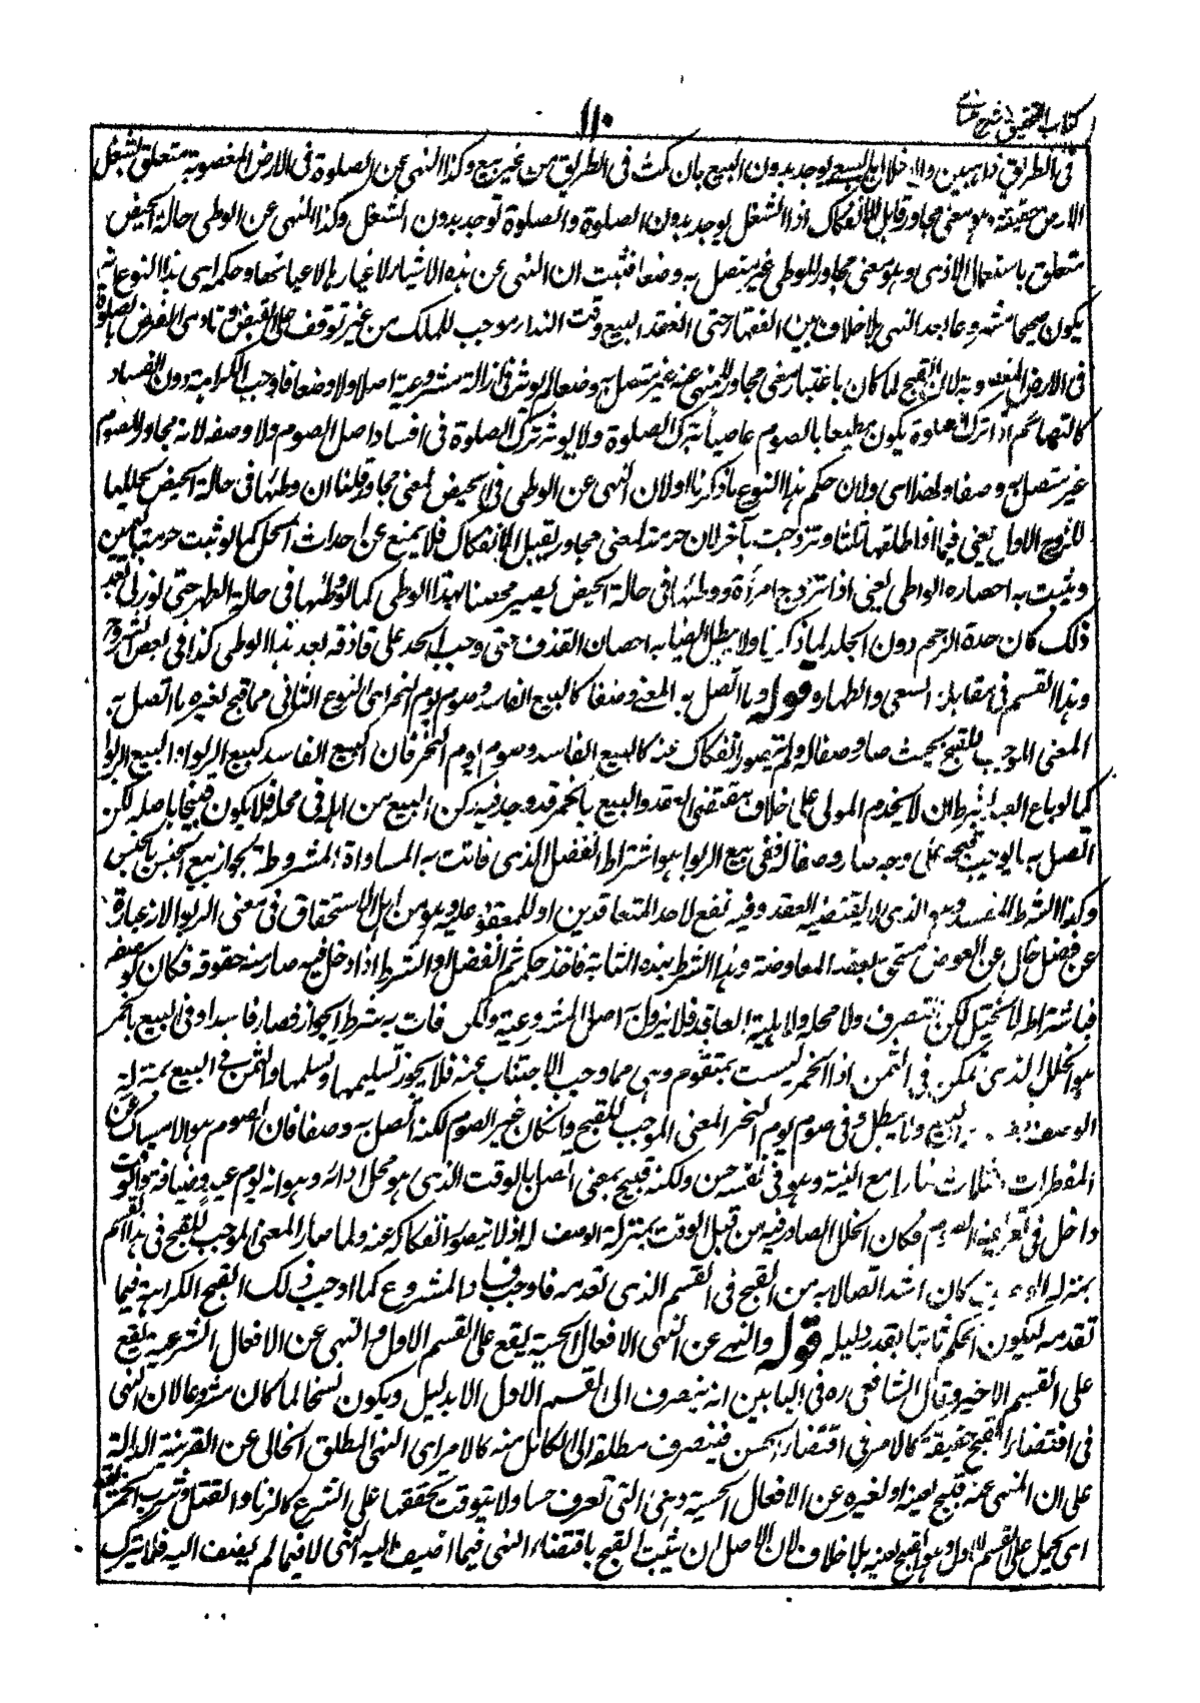 كتاب التحقيق شرح حسامى
١١٠
فى الطريق ذاهبين والاخلال بالسعى يوجد بدون البيع بان مكث فى الطريق من غير بيع وكذا النهى عن الصلوة فى الارض المغصوبة متعلق بشغل
الارض حقيقة وهو معنى مجاور قابل للانفكاك اذ الشغل يوجد بدون الصلوة والصلوة توجد بدون الشغل وكذا النهى عن الوطى حالة الحيض
متعلق باستعمال الاذى وهو معنى مجاور للوطى غير متصل به وضعا فثبت ان النهى عن هذه الاشياء لاغيارها لا عيانها وحكمه اى هذا النوع انه
يكون صحيحا مشروعا بعد النهى بلا خلاف بين الفقهاء حتى العقد البيع وقت النداء موجب للملك من غير توقف على القبض وتادى الفرض بالصلوة
فى الارض المغصوبة لان القبح لما كان باعتبار معنى مجاور للمنهى عنه غير متصل به وضعا لم يوثر فى ازالة مشروعية اصلا ولا وضعا فاوجب الكراهة دون الفساد
كالتهائم اذا ترك الصلوة يكون مطيعا بالصوم عاصيا بترك الصلوة ولا يوثر ترك الصلوة فى افساد اصل الصوم ولا وصفه لانه مجاور للصوم
غير متصل به وصفا ولهذا اى ولان حكم هذا النوع ما ذكرنا اولان النهى عن الوطى فى الحيض لمعنى مجاور قلنا ان وطئها فى حالة الحيض يحللها
للزوج الاول يعنى فيما اذا طلقها ثلثا وتزوجت بآخر لان حرمته لمعنى مجاور يقبل الانفكاك فلا يمنع عن احداث الحل كما لو ثبت حرمته باليمين
ويثبت به احصاره الواطى يعنى اذا تزوج امرأة ووطئها فى حالة الحيض يصير محصنا بهذا الوطى كما لو وطئها فى حالة الطهر حتى لو زنى بعد
ذلك كان حده الرجم دون الجلد لما ذكرنا ولا يبطل ايضا به احصان القذف حتى وجب الحد على قاذفه بعد هذا الوطى كذا فى بعض الشروح
وهذا القسم فى مقابلة السعى والطهار قوله وما اتصل به المعنى وضعا كالبيع الفاسد وصوم يوم النحر اى النوع الثانى مما قبح لغيره ما اتصل به
المعنى الموجب للقبح بحيث صار وصفا له ولم يتصور انفكاك عنه كالبيع الفاسد وصوم يوم النحر فان البيع الفاسد كبيع الربوا والبيع الربوا
كما لو باع العبد بشرط ان لا يخدم المولى على خلاف مقتضى العقد والبيع بالخمر قد وجد فيه ركن البيع من اهله فى محله فلا يكون قبيحا باصله لكن
اتصل به ما يوجب قبحه على وجه صار وصفا له ففى بيع الربوا هو اشتراط الفضل الذى فاتت به المساواة المشروطة لجواز بيع الجنس بالجنس
وكذا الشرط المفسد وهو الذى لا يقتضيه العقد وفيه نفع لاحد المتعاقدين او للمعقود عليه وهو من اهل الاستحقاق فى معنى الربوا لانه عبارة
عن فضل خال عن العوض مستحق بعقد المعاوضة وهذا الشرط بهذه المثابة فاخذ حكمه ثم الفضل او الشرط اذا دخل فيه صار منه حقوقه فكان كوصفه
فباشتراطه لا يختل ركن التصرف ولا محله ولا اهلية العاقد فلا يزول اصل المشروعية ولكن فات به شرط الجواز فصار فاسدا وفى البيع بالخمر
هو الخلل الذى تمكن فى الثمن اذ الخمر ليست بمتقوم وهى مما وجب الاجتناب عنه فلا يجوز تسليمها وتسلمها والثمن فى البيع بمنزلة
الوصف البيع وما يبطل وفى صوم يوم النحر المعنى الموجب للقبح وان كان غير الصوم لكنه اتصل به وصفا فان الصوم هو الامساك عن
المفطرات الثلاث نهارا مع النية وهو فى نفسه حسن ولكنه قبيح بمعنى اتصل بالوقت الذى هو محل ادائه وهو انه يوم عيد وضيافة والوقت
داخل فى تعريف الصوم فكان الخلل الصادر فيه من قبل الوقت بمنزلة الوصف له اذ لا يتصور انفكاكه عنه ولما صار المعنى الموجب للقبح فى هذا القسم
بمنزلة الوصف كان اشد اتصالا به من القبح فى القسم الذى تقدمه فاوجب فساد المشروع كما اوجب ذلك القبح الكراهة فيما
تقدمه ليكون الحكم ثابتا بقدر دليله قوله والنهى عن النهى الافعال الحسية يقع على القسم الاول والنهى عن الافعال الشرعية يقع
على القسم الاخير وقال الشافعى ره فى البابين انه ينصرف الى القسم الاول الا بدليل ويكون نسخا لما كان مشروعا لان النهى
فى اقتضاء القبح حقيقة كالامر فى اقتضاء الحسن فينصرف مطلقه الى الكامل منه كالامر اى النهى المطلق الخالى عن القرينة الدالة
على ان المنهى عنه قبيح لعينه او لغيره عن الافعال الحسية وهى التى تعرف حسا ولا يتوقف تحققها على الشرع كالزنا والقتل وشرب الخمر يقع
اى يحمل على القسم الاول وهو القبيح لعينه بلا خلاف لان الاصل ان يثبت القبح باقتضاء النهى فيما اضيف اليه النهى لا فيما لم يضف اليه فلا يترك